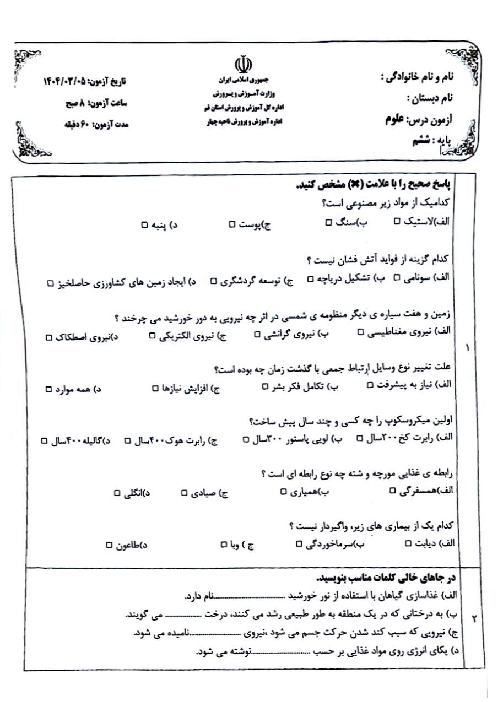 نام و نام خانوادگی :
نام دبستان :
آزمون درس: علوم
پایه : ششم
جمهوری اسلامی ایران
وزارت آموزش و پرورش
اداره کل آموزش و پرورش استان قم
اداره آموزش و پرورش ناحیه چهار
تاریخ آزمون: ۱۴۰۴/۰۳/۰۵
ساعت آزمون: ۸ صبح
مدت آزمون: ۶۰ دقیقه
۱
پاسخ صحیح را با علامت (✖) مشخص کنید.
کدامیک از مواد زیر مصنوعی است؟
الف)لاستیک □ ب)سنگ □ ج)پوست □ د) پنبه □
کدام گزینه از فواید آتش فشان نیست ؟
الف) سونامی □ ب) تشکیل دریاچه □ ج) توسعه گردشگری □ د) ایجاد زمین های کشاورزی حاصلخیز □
زمین و هفت سیاره ی دیگر منظومه ی شمسی در اثر چه نیرویی به دور خورشید می چرخند ؟
الف) نیروی مغناطیسی □ ب) نیروی گرانشی □ ج) نیروی الکتریکی □ د)نیروی اصطکاک □
علت تغییر نوع وسایل ارتباط جمعی با گذشت زمان چه بوده است؟
الف) نیاز به پیشرفت □ ب) تکامل فکر بشر □ ج) افزایش نیازها □ د) همه موارد □
اولین میکروسکوپ را چه کسی و چند سال پیش ساخت؟
الف) رابرت کخ۲۰۰سال □ ب) لویی پاستور ۳۰۰سال □ ج) رابرت هوک۴۰۰سال □ د)گالیله۴۰۰سال □
رابطه ی غذایی مورچه و شته چه نوع رابطه ای است ؟
الف)همسفرگی □ ب)همیاری □ ج) صیادی □ د)انگلی □
کدام یک از بیماری های زیره واگیردار نیست ؟
الف) دیابت □ ب)سرماخوردگی □ ج ) وبا □ د)طاعون □
۲
در جاهای خالی کلمات مناسب بنویسید.
الف) غذاسازی گیاهان با استفاده از نور خورشید ..............................نام دارد.
ب) به درختانی که در یک منطقه به طور طبیعی رشد می کنند، درخت ................ می گویند.
ج) نیرویی که سبب کند شدن حرکت جسم می شود ،نیروی ......................نامیده می شود.
د) یکای انرژی روی مواد غذایی بر حسب .................نوشته می شود.